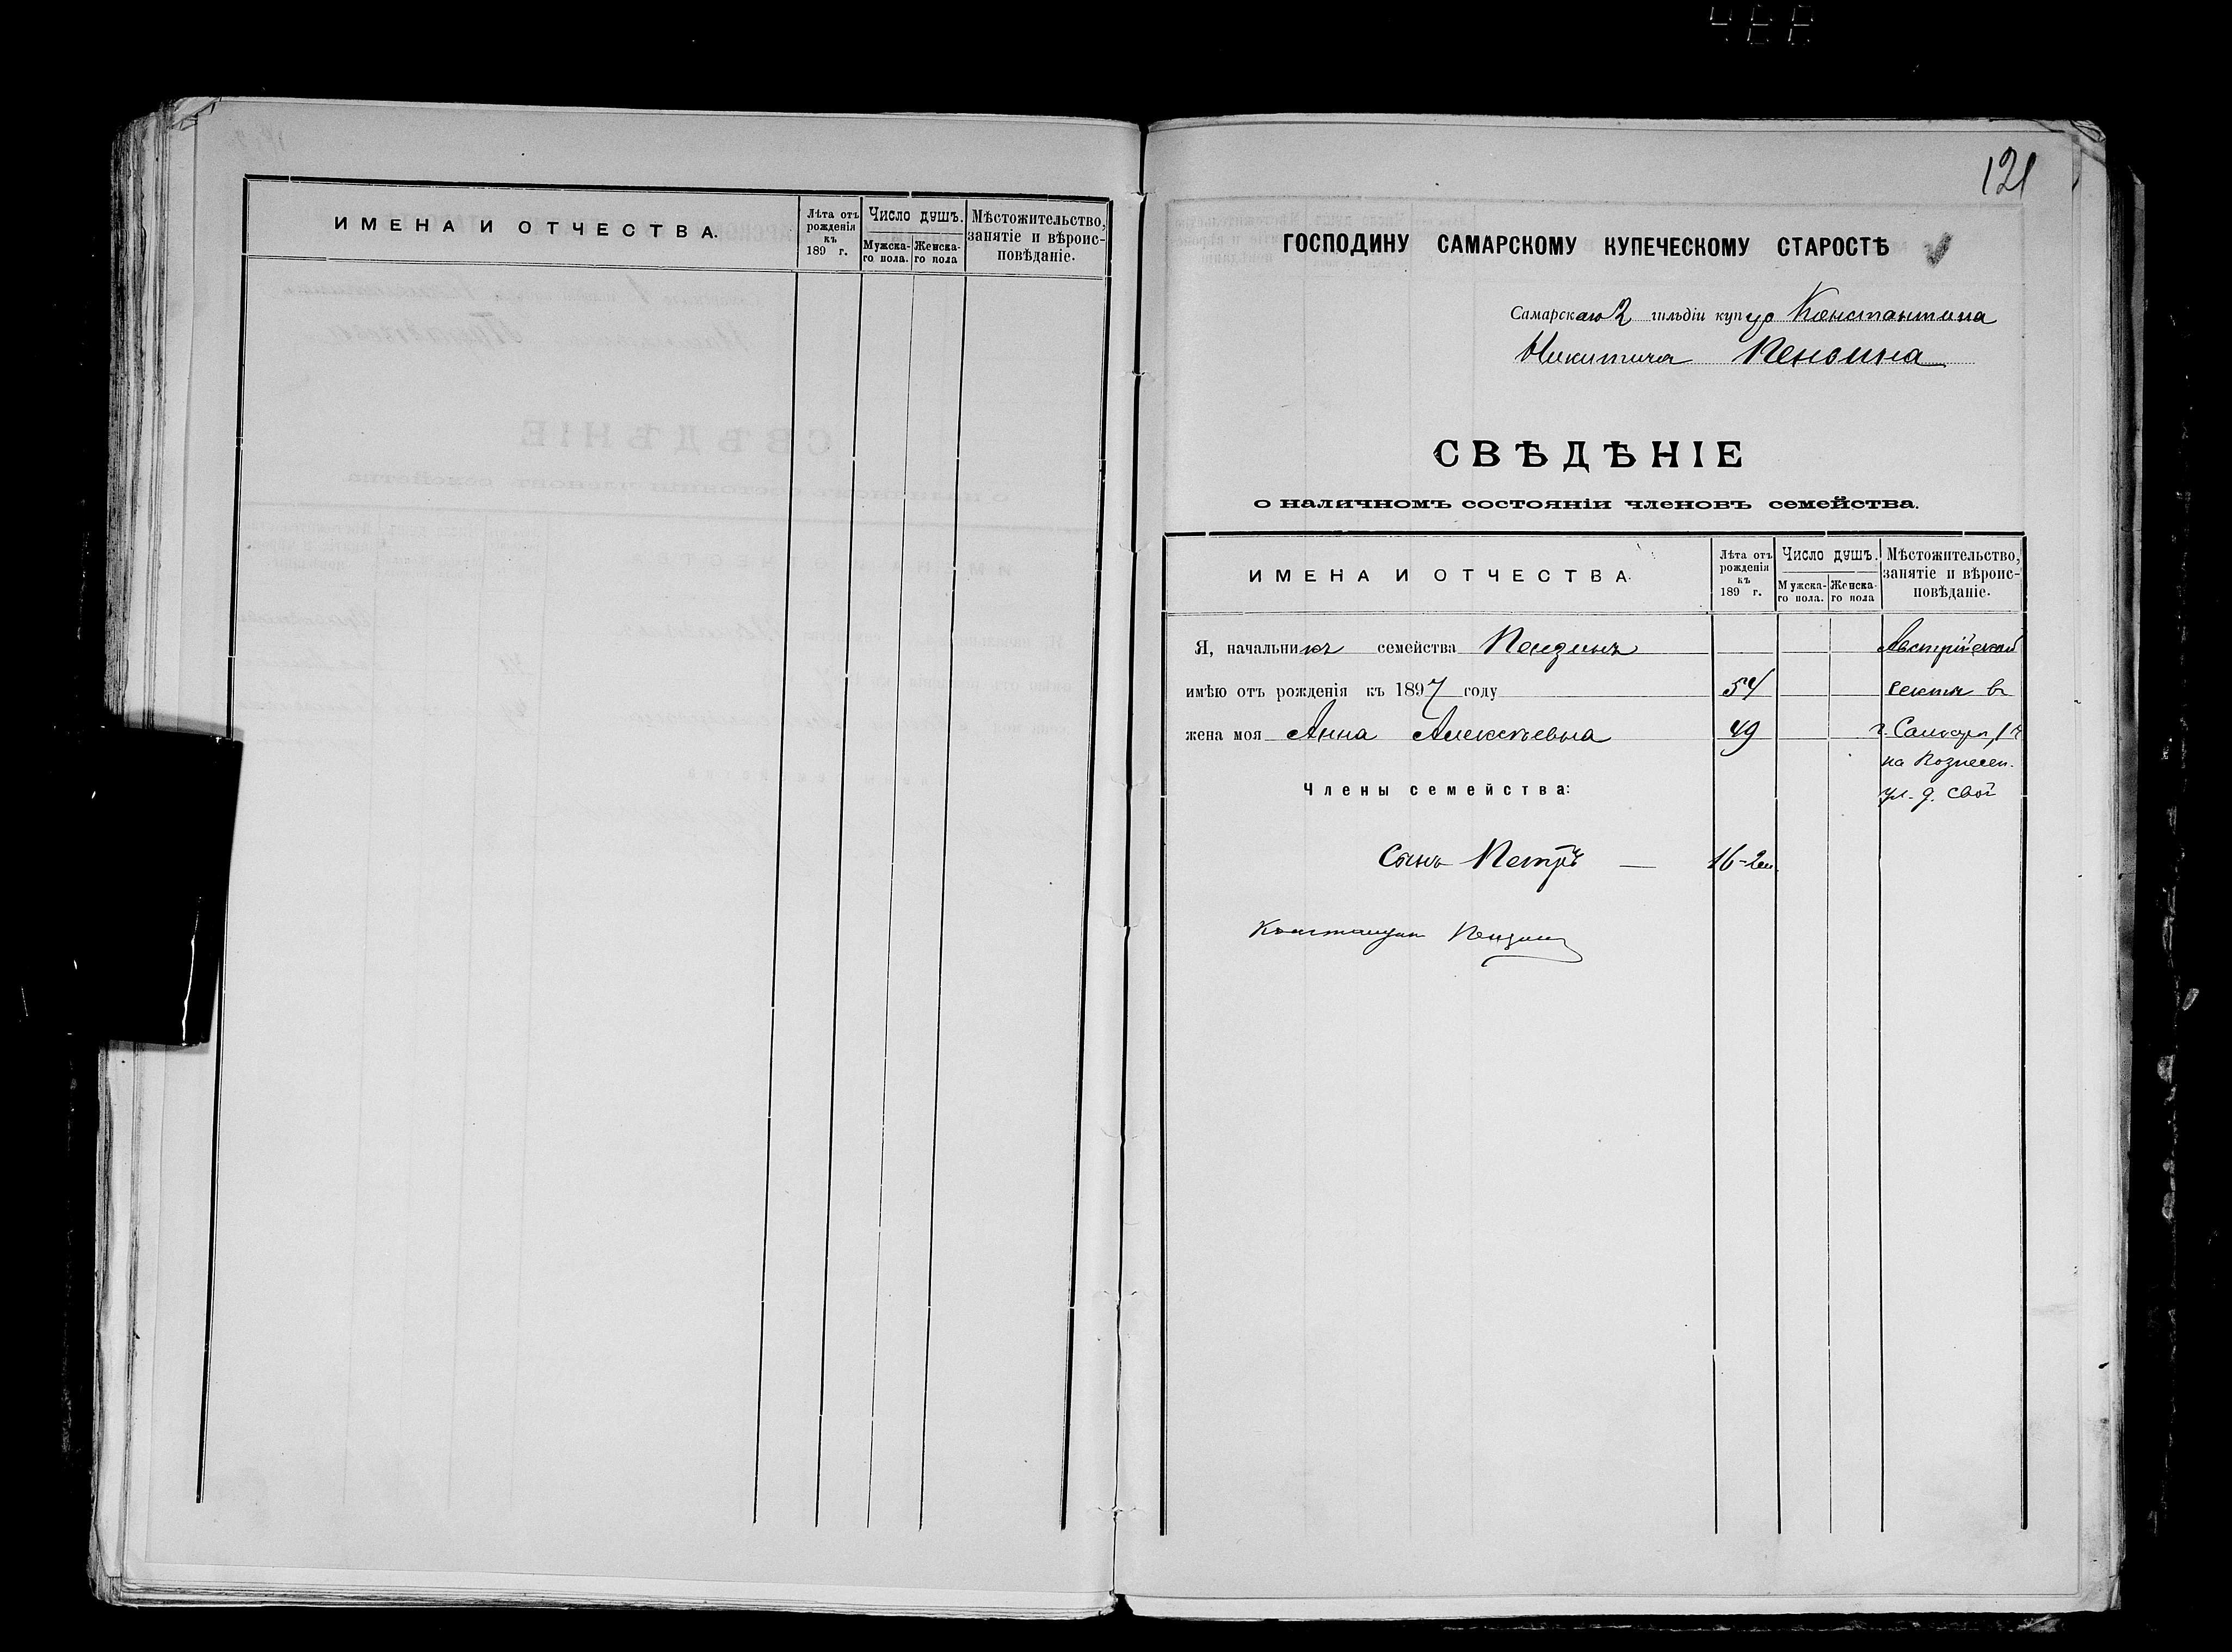 ИМЕНА И ОТЧЕСТВА.
Лѣта отъ рожденія къ 189 г.
Число душъ.
Мужска-го пола.
Женска-го пола
Мѣстожительство, занятіе и вѣроис-повѣданіе.
121
ГОСПОДИНУ САМАРСКОМУ КУПЕЧЕСКОМУ СТАРОСТѢ
Самарскаго 2 гильдіи купца Константина
Никитича Пензина
СВѢДѢНІЕ
о наличномъ состояніи членовъ семейства.
ИМЕНА И ОТЧЕСТВА.
Лѣта отъ рожденія къ 189 г.
Число душъ.
Мужска-го пола.
Женска-го пола
Мѣстожительство, занятіе и вѣроис-повѣданіе.
Я, начальникъ семейства Пензинъ Австрійской
имѣю отъ рожденія къ 1897 году 54 секты въ
жена моя Анна Алексѣевна 49 г. Самарѣ, 1 ч
на Вознесен.
ул. д. свой
Члены семейства:
Сынъ Петръ — 16-
Константин Пензин